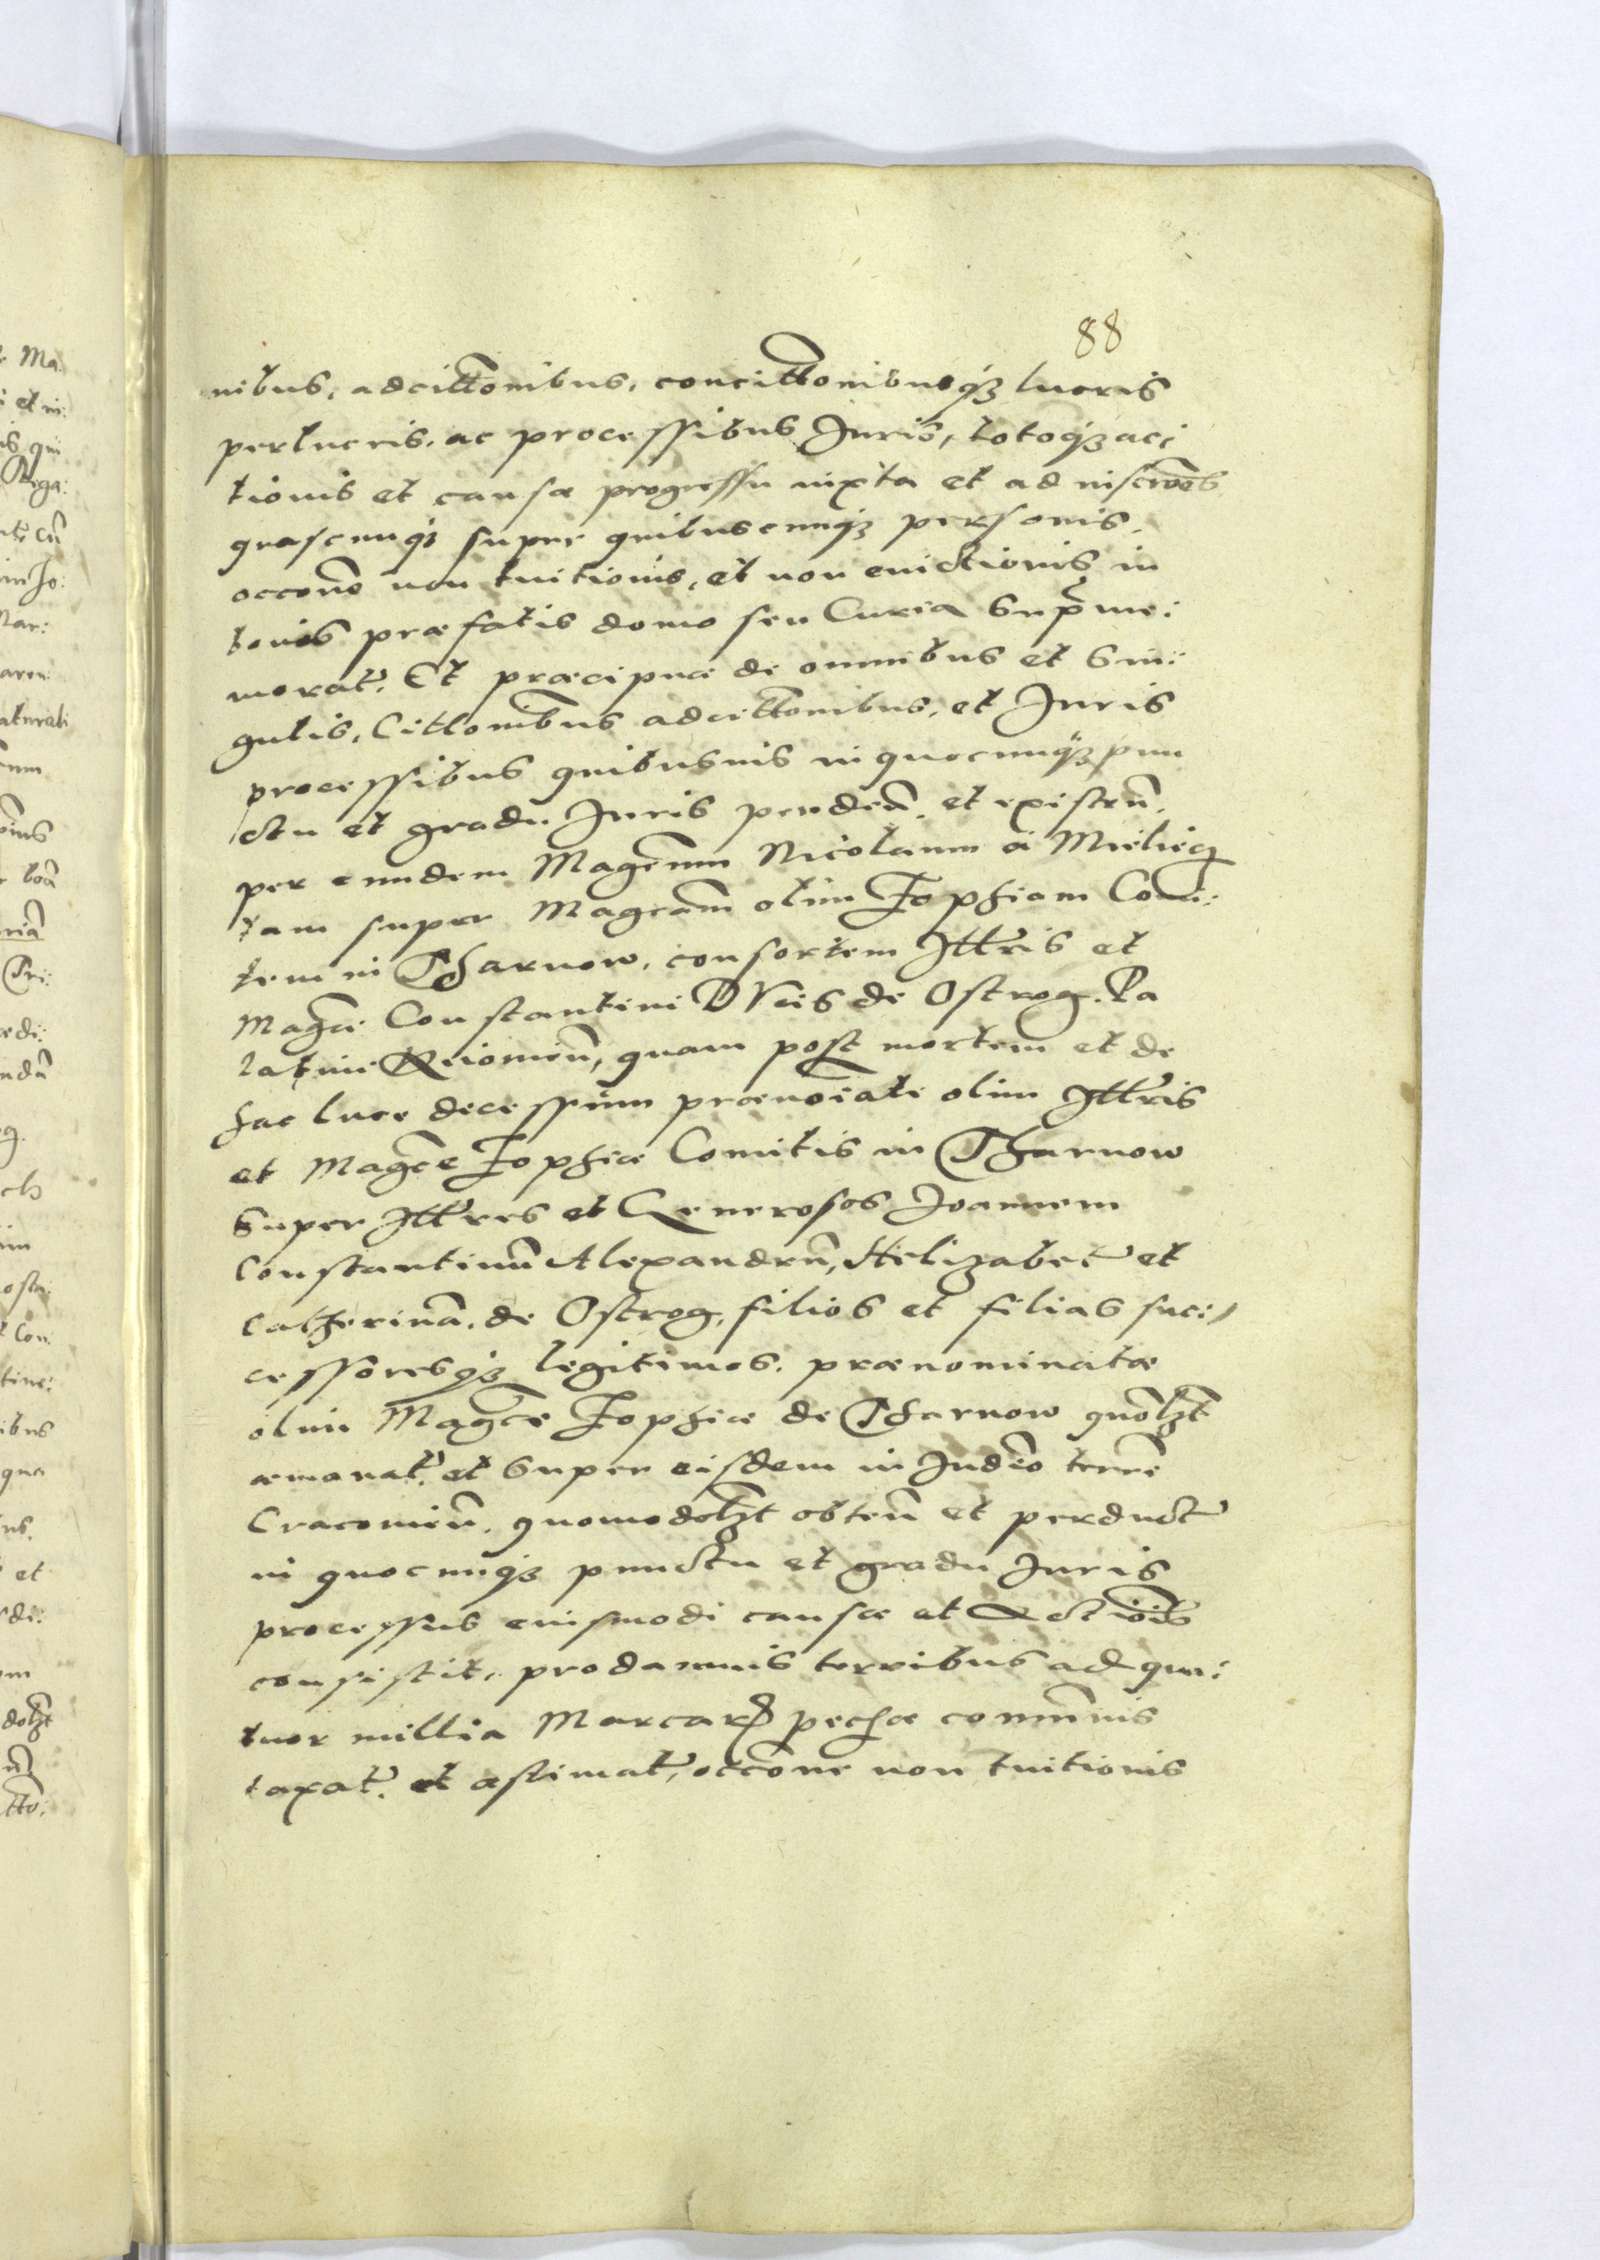 88
nibus, adcittonibus, concittonibusq3 lucris
perlucris, ac processibus Juris, totoq3 ac:
tionis et causæ progressu iuxta et ad inscrones
quascunq3 super quibuscunq3 personis,
occone non tuitionis, et non euictionis in
bonis præfatis domo seu Curia Supme:
morat. Et præcipue de omnibus et Sin:
gulis, Cittonibus adcittonibus, et Juris
processibus quibusuis in quocunq3 pun
ctu et gradu Juris penden. et existen.
per eundem Magcum Nicolaum a Mieliecz
tam super Magcam olim Zophiam Comi:
tem in Tharnow, consortem Jllris et
Magci Constantini Ducis de Ostrog. Pa
latini Kiiouien, quam post mortem et de
hac luce decessum prænoiatæ olim Jllris
et Magcæ Zophiæ Comitis in Tharnow
Super Jllres et Generosos Joannem
Constantinu Alexandru, Helizabet et
Catherina, de Ostrog, filios et filias suc:
cessoresq3 legitimos, prænominatæ
olim Magcæ Zophiæ de Tharnow quolzt
æmanat. et Super eisdem in Judeo terre
Cracouien. quomodolzt obten et perduct
in quocunq3 punctu et gradu Juris
processus euismodi causæ et Actiois
consistit, pro damnis terribus ad qua:
tuor millia Marcar pechæ communis
taxat. et æstimat, occone non tuitionis
Ma
et in:
qui
Rega:
cu
aturali
bus
qua
et